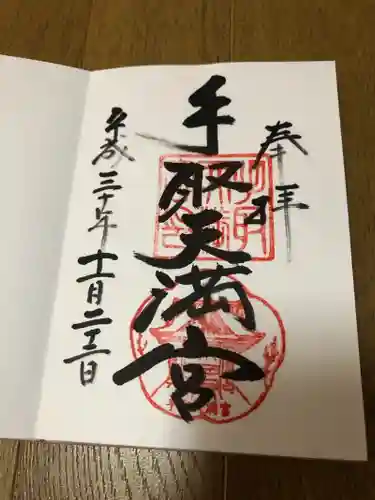 奉拝
手取天満宮
平成三十年十一月二十二日